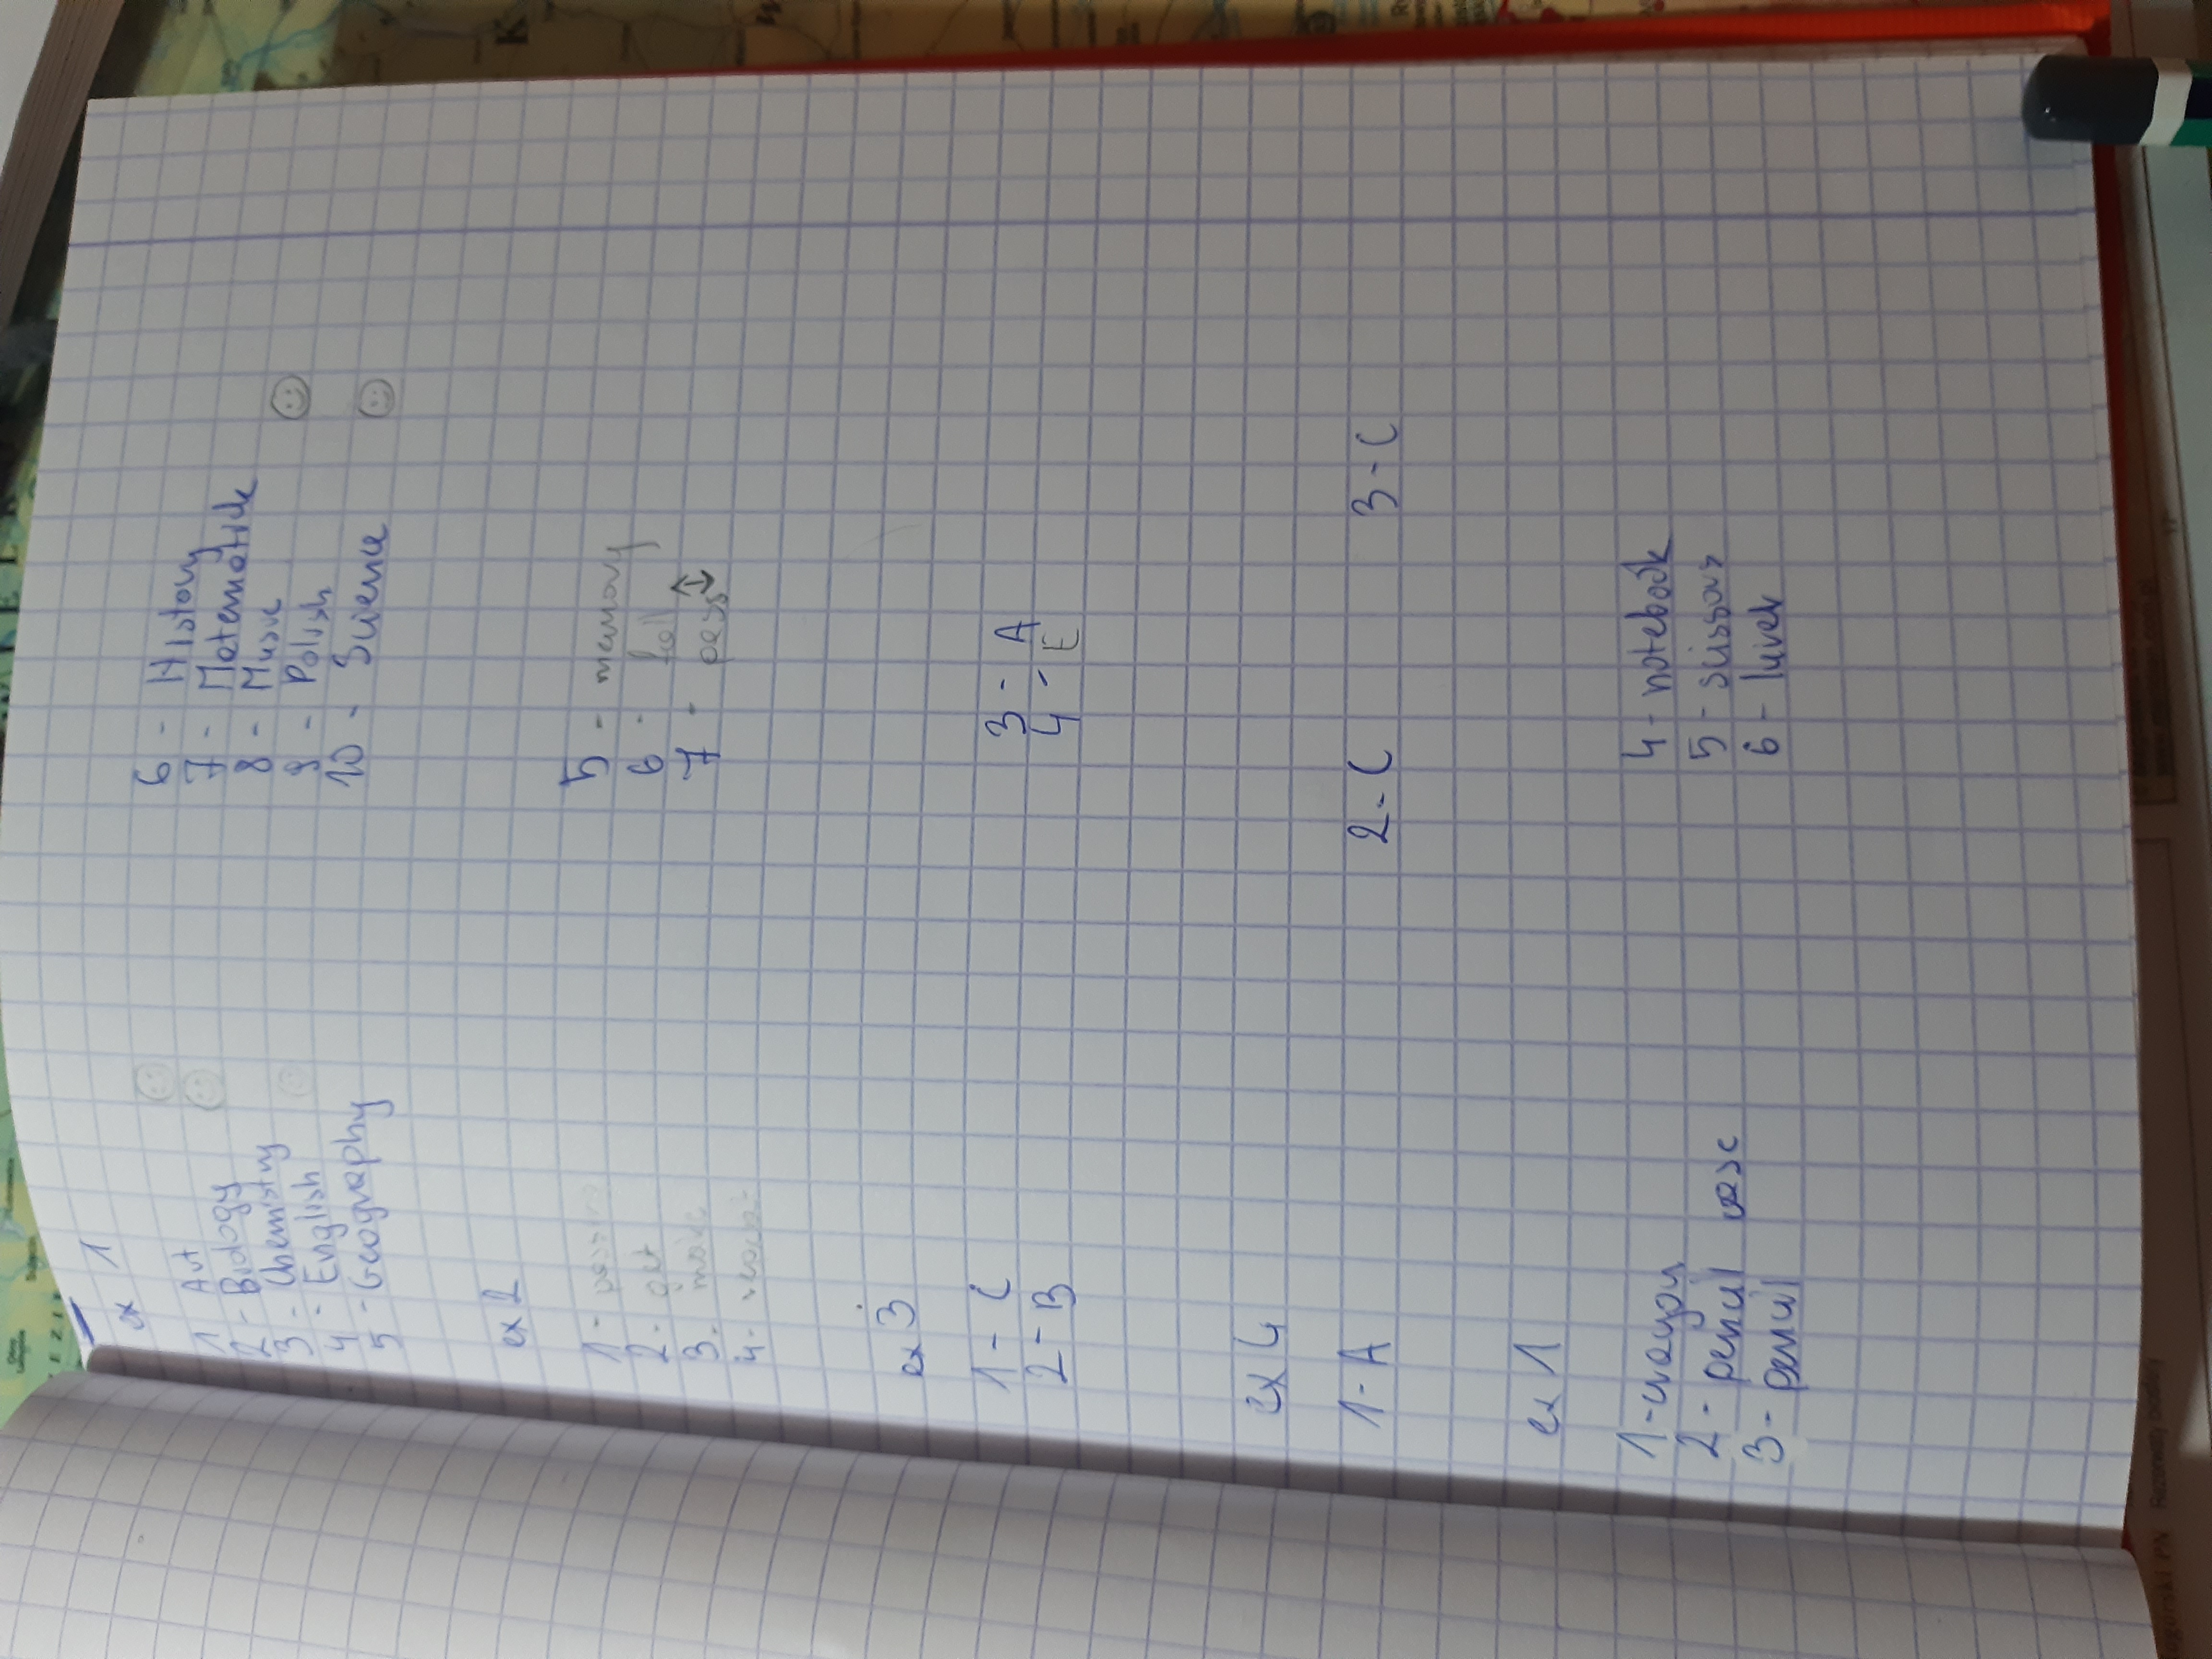 ex 1
1 Art
2 - Biology
3 - Chemistry
4 - English
5 - Geography
6 - History
7 - Matematick
8 - Music
9 - Polish
10 - Science
ex 2
1 -
2. get
3. make
4.
5 - memory
6 - fail
7 - pass
ex 3
1 - C
2 - B
3 - A
4 - E
ex 4
1 - A
2 - C
3 - C
ex 1
1 - crayon
2 - pencil case
3 - pencil
4 - notebook
5 - scissors
6 -